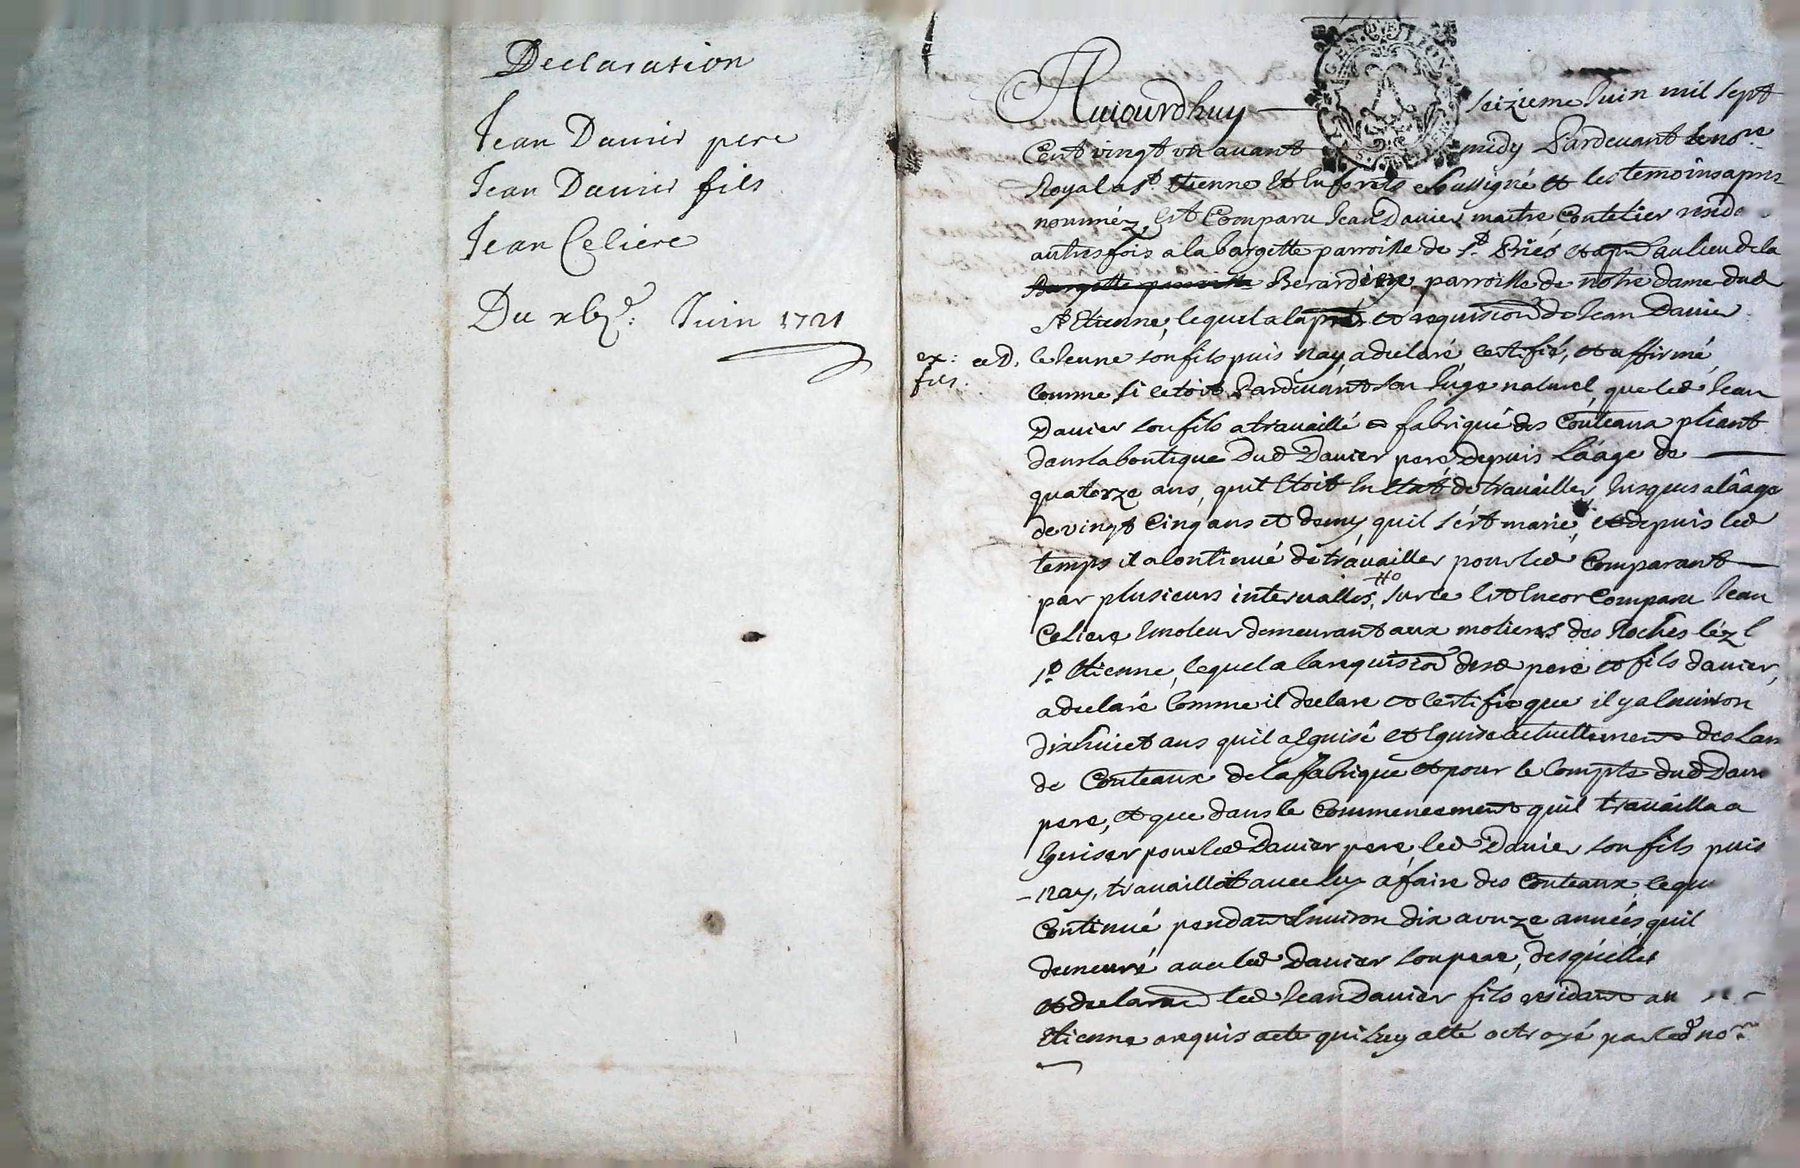 Declaration
Jean Davier pere
Jean Davier fils
Jean Celiere
Du xbj^e: Juin 1721
GEN. DE LION
Aujourdhuy seizieme Juin mil sept
Cent vingt un avant midy Pardevant le no^re
Royal a S^t Etienne et en forets soussigné et les temoins apres
nommez, est Comparu Jean Davier maitre Coutelier reside
autresfois a la bargette parroisse de S^t Priés et apnt au lieu de la
Bargette parroisse Berardiere parroisse de notre dame dud
S^t Etienne, lequel a la pre et requision de Jean Davier
ex: ce D. le Jeune son fils puis nay, a declaré certifié, et affirmé
fils.
comme si cetoit Pardevant son Juge naturel, que led Jean
Davier son fils a travaillé et fabriqué des Couteaux pliant
dans la boutique dud Davier pere depuis Láage de
quatorze ans, quil etoit en etat de travailler, Jusques a lâage
de vingt Cinq ans et demy quil sést marié, et depuis led
temps il a Continué de travailler pour led Comparant
par plusieurs intervalles, Surce est encor Comparu Jean
Celiere emoleur demeurant aux moliers des Roches léz
S^t Etienne, lequel a la requision desd pere et fils davier,
a declaré Comme il declare et certifie que il y a Environ
dixhuict ans quil a eguisé et Eguise actuellement des Lam
de Couteaux de la fabrique et pour le Compte dud Davier
pere, et que dans le Commencement quil travailla a
Eguiser pour led Davier pere led Davier son fils puis
nay, travailloit avec luy a faire des Couteaux, lequ
Continué pendant Environ dix a onze années, quil
demeuré avec led Davier son pere, desquelles
et declaraon led Jean Davier fils residant au
Etienne requis acte qui luy a été octroyé par led no^re